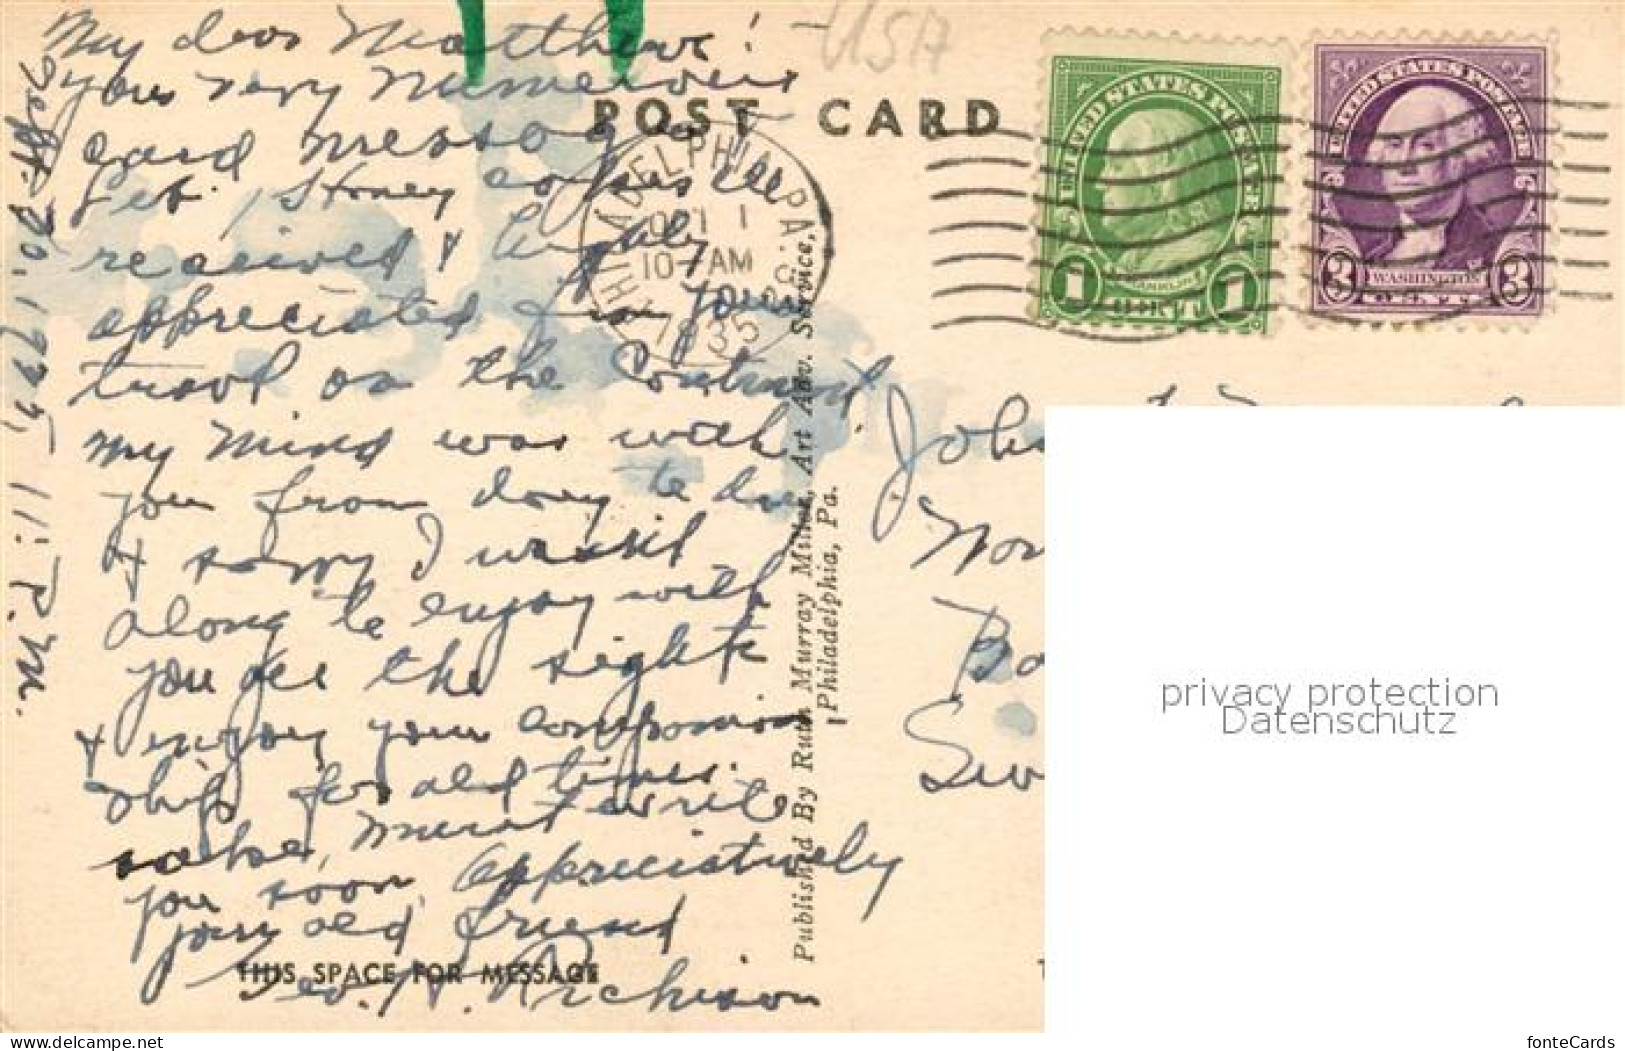 My dear Matthew!
your very numerous
card message
let, & Honey
received & highly
appreciated from your
travel on the Continent
my mind was with
you from day to day
& sorry I wasnt
along to enjoy with
you all the sights
& enjoy your companion
ship for old times
sake, must write
you soon, appreciatively
your old friend
Geo. W. Richison
Sept. 30, 1935, 11 P.M.
USA
POST CARD
PHILADELPHIA, PA.
OCT 1
10 - AM
1935
UNITED STATES POSTAGE
1 FRANKLIN 1
UNITED STATES POSTAGE
3 WASHINGTON 3
Published By Ruth Murray Miller, Art Adv. Service,
Philadelphia, Pa.
THIS SPACE FOR MESSAGE
privacy protection
Datenschutz
www.delcampe.net
fonteCards